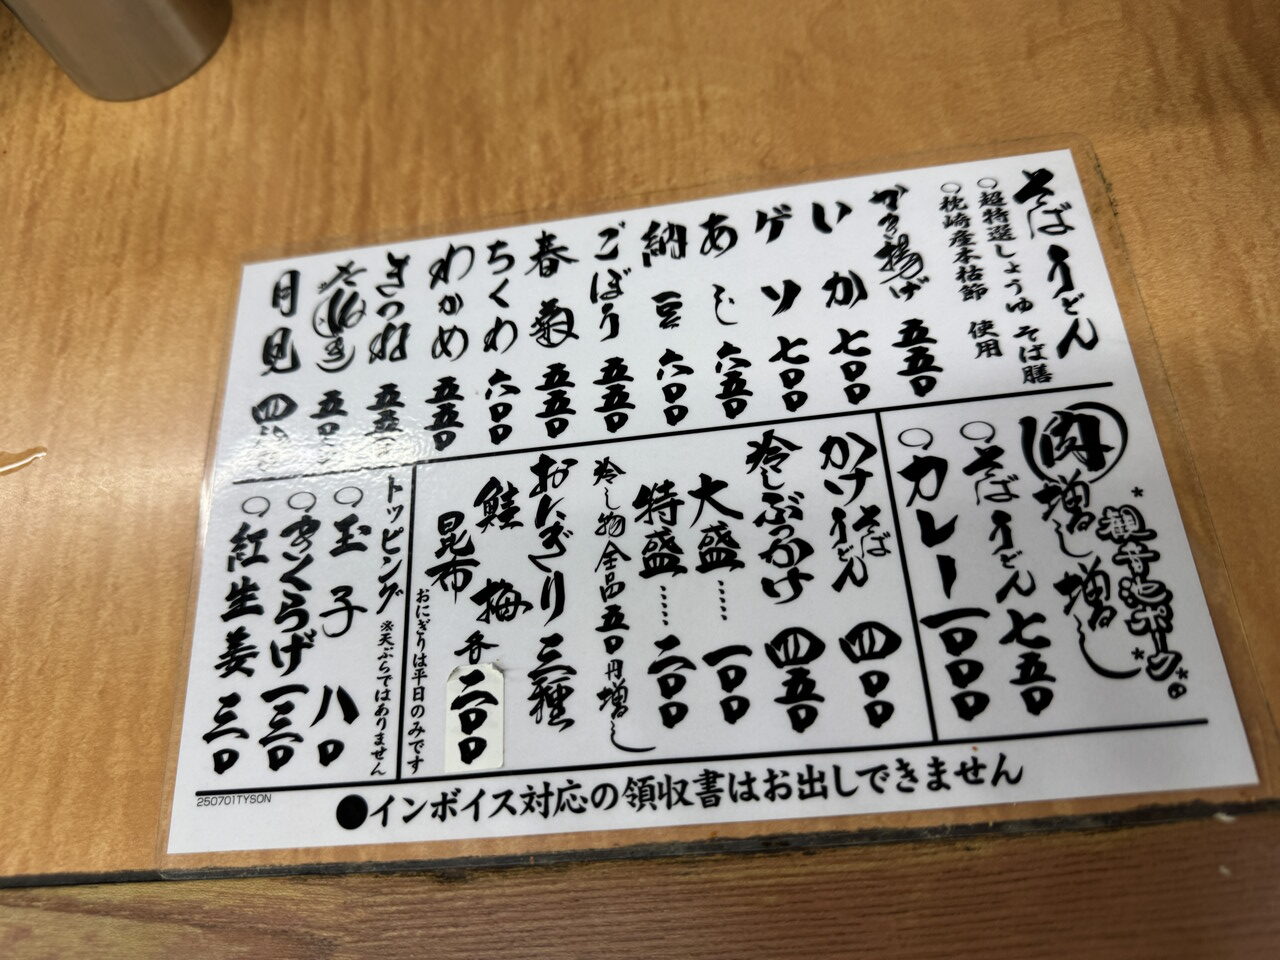 そばうどん
○超特選しょうゆ そば膳
○枕崎産本枯節 使用
かき揚げ 五五〇
いか 七〇〇
ゲソ 七〇〇
あじ 六五〇
納豆 六〇〇
ごぼう 五五〇
春菊 五五〇
ちくわ 六〇〇
わかめ 五五〇
きつね 五五〇
五〇
月見 四
肉増し増し
観音池ポーク。
○そばうどん 七五〇
○カレー 一〇〇〇
かけ そば うどん 四〇〇
冷しぶっかけ 四五〇
大盛…… 一〇〇
特盛…… 二〇〇
冷し物全品五〇円増し
おにぎり三種
鮭 梅
昆布 各二〇〇
おにぎりは平日のみです
トッピング ※天ぷらではありません
○玉子 八〇
○きくらげ 一三〇
○紅生姜 三〇
●インボイス対応の領収書はお出しできません
250701TYSON